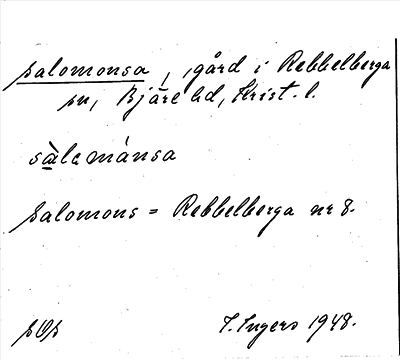 Salomonsa, gård i Rebbelberga
sn, Bjäre hd, Krist. l.
sàlemánsa
Salomons = Rebbelberga nr 8.
sOs
I. Ingers 1948.